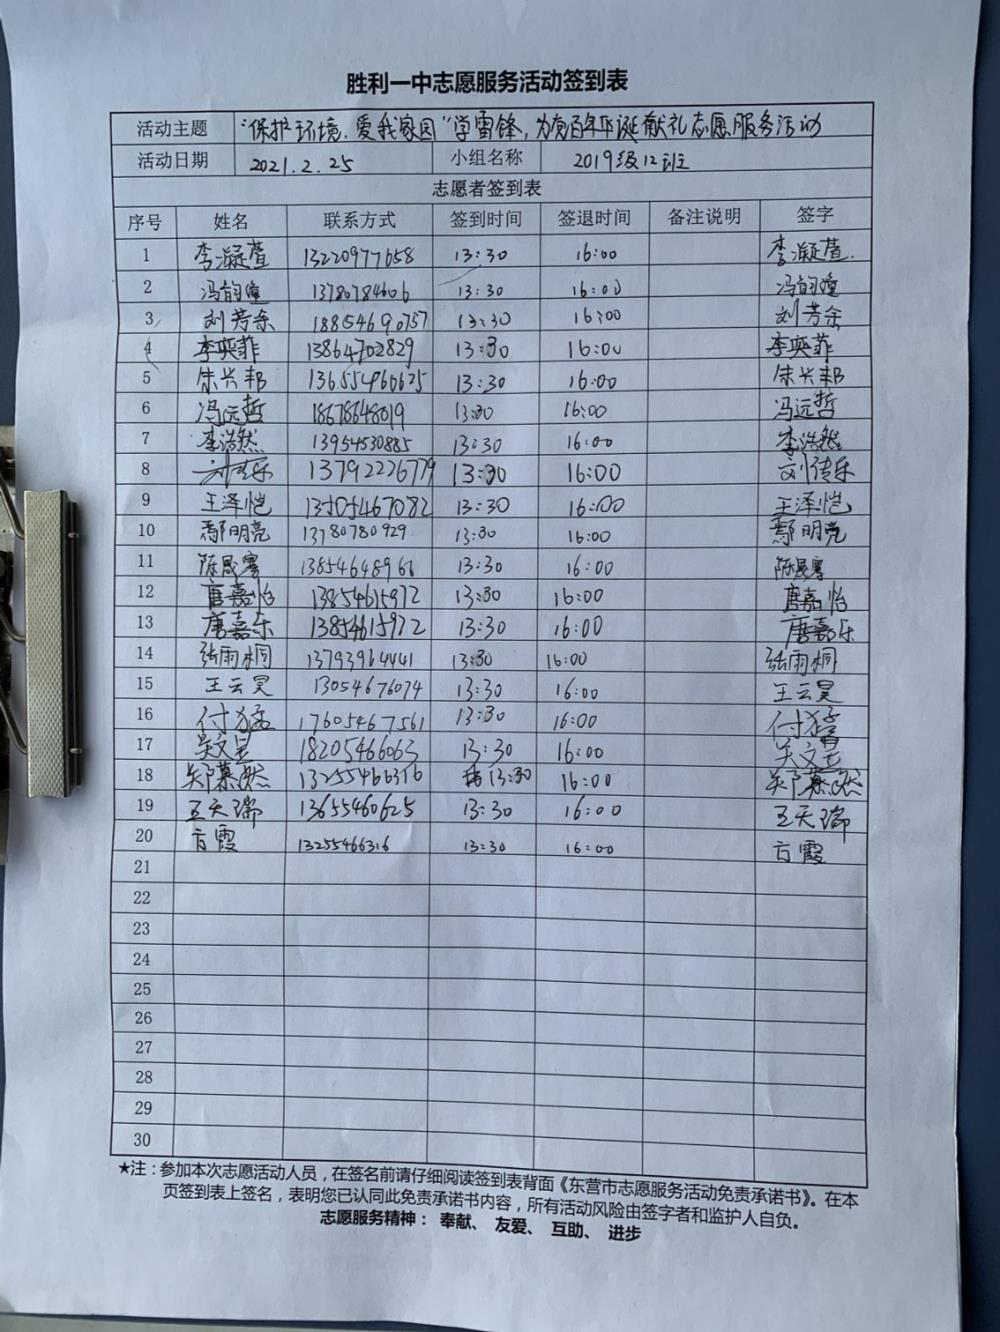 胜利一中志愿服务活动签到表
活动主题 "保护环境,爱我家园"学雷锋,为党百年华诞献礼志愿服务活动
活动日期 2021.2.25 小组名称 2019级12班
志愿者签到表
序号 姓名 联系方式 签到时间 签退时间 备注说明 签字
1 李凝萱 13220977658 13:30 16:00 李凝萱.
2 冯韵瞳 13780784606 13:30 16:00 冯韵瞳
3 刘芳余 18854690757 13:30 16:00 刘芳余
4 李奕菲 13864702829 13:30 16:00 李奕菲
5 朱兴邦 136554960625 13:30 16:00 朱兴邦
6 冯远哲 18678648019 13:30 16:00 冯远哲
7 李浩然 13954530885 13:30 16:00 李浩然
8 刘传乐 13792226779 13:30 16:00 刘传乐
9 王泽恺 13505467082 13:30 16:00 王泽恺
10 鄢明亮 13780780929 13:30 16:00 鄢明亮
11 13854648966 13:30 16:00
12 唐嘉怡 13854615972 13:30 16:00 唐嘉怡
13 唐嘉乐 13854615972 13:30 16:00 唐嘉乐
14 张雨桐 13793964441 13:30 16:00 张雨桐
15 王云昊 13054676074 13:30 16:00 王云昊
16 付猛 17605467561 13:30 16:00 付猛
17 吴文昱 18205466063 13:30 16:00 吴文昱
18 郑慕然 13255466316 13:30 16:00 郑慕然
19 王天瑞 13655460625 13:30 16:00 王天瑞
20 方霞 13255466316 13:30 16:00 方霞
21
22
23
24
25
26
27
28
29
30
★注:参加本次志愿活动人员,在签名前请仔细阅读签到表背面《东营市志愿服务活动免责承诺书》。在本
页签到表上签名,表明您已认同此免责承诺书内容,所有活动风险由签字者和监护人自负。
志愿服务精神: 奉献、 友爱、 互助、 进步